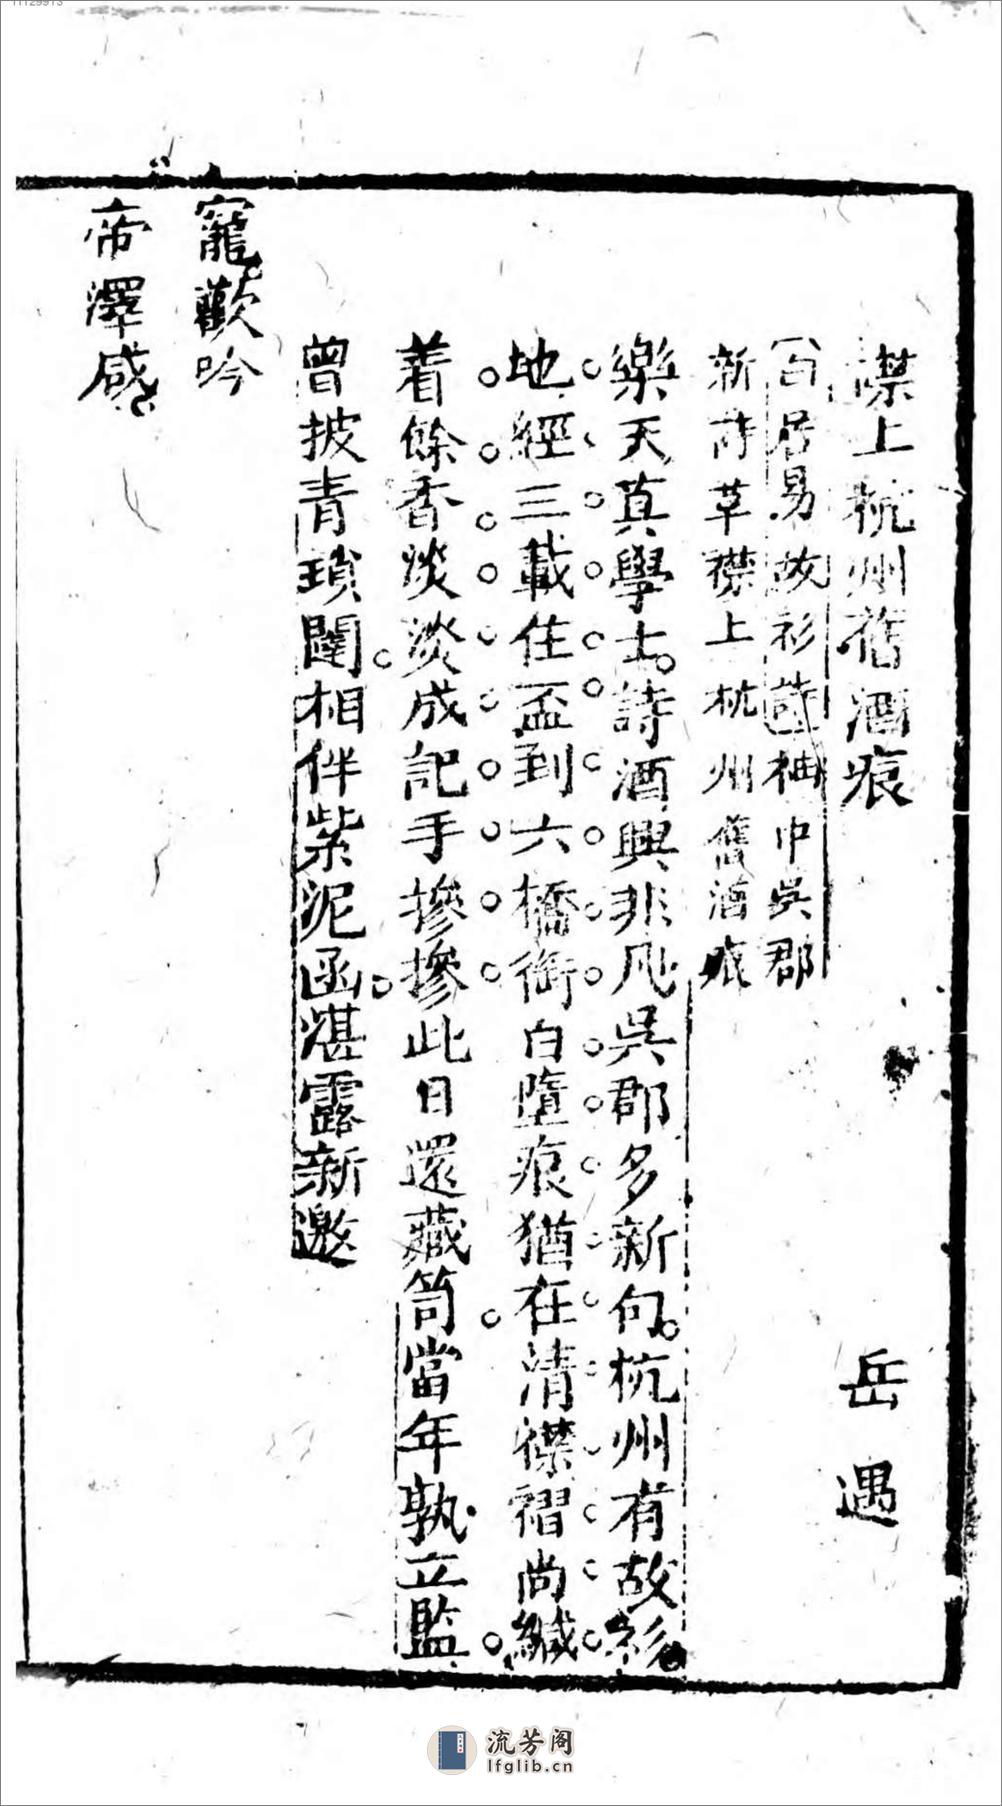 11129913
襟上杭州舊酒痕
岳遇
白居易故衫詩袖中吳郡
新詩草襟上杭州舊酒痕
樂天真學士詩酒興非凡吳郡多新句杭州有故衫
地經三載住盃到六橋銜白墮痕猶在清襟褶尚緘
着餘香淡淡成記手摻摻此日還藏笥當年孰立監
曾披青瑣闥相伴紫泥函湛露新邀
寵歡吟
帝澤咸
流芳阁
lfglib.cn